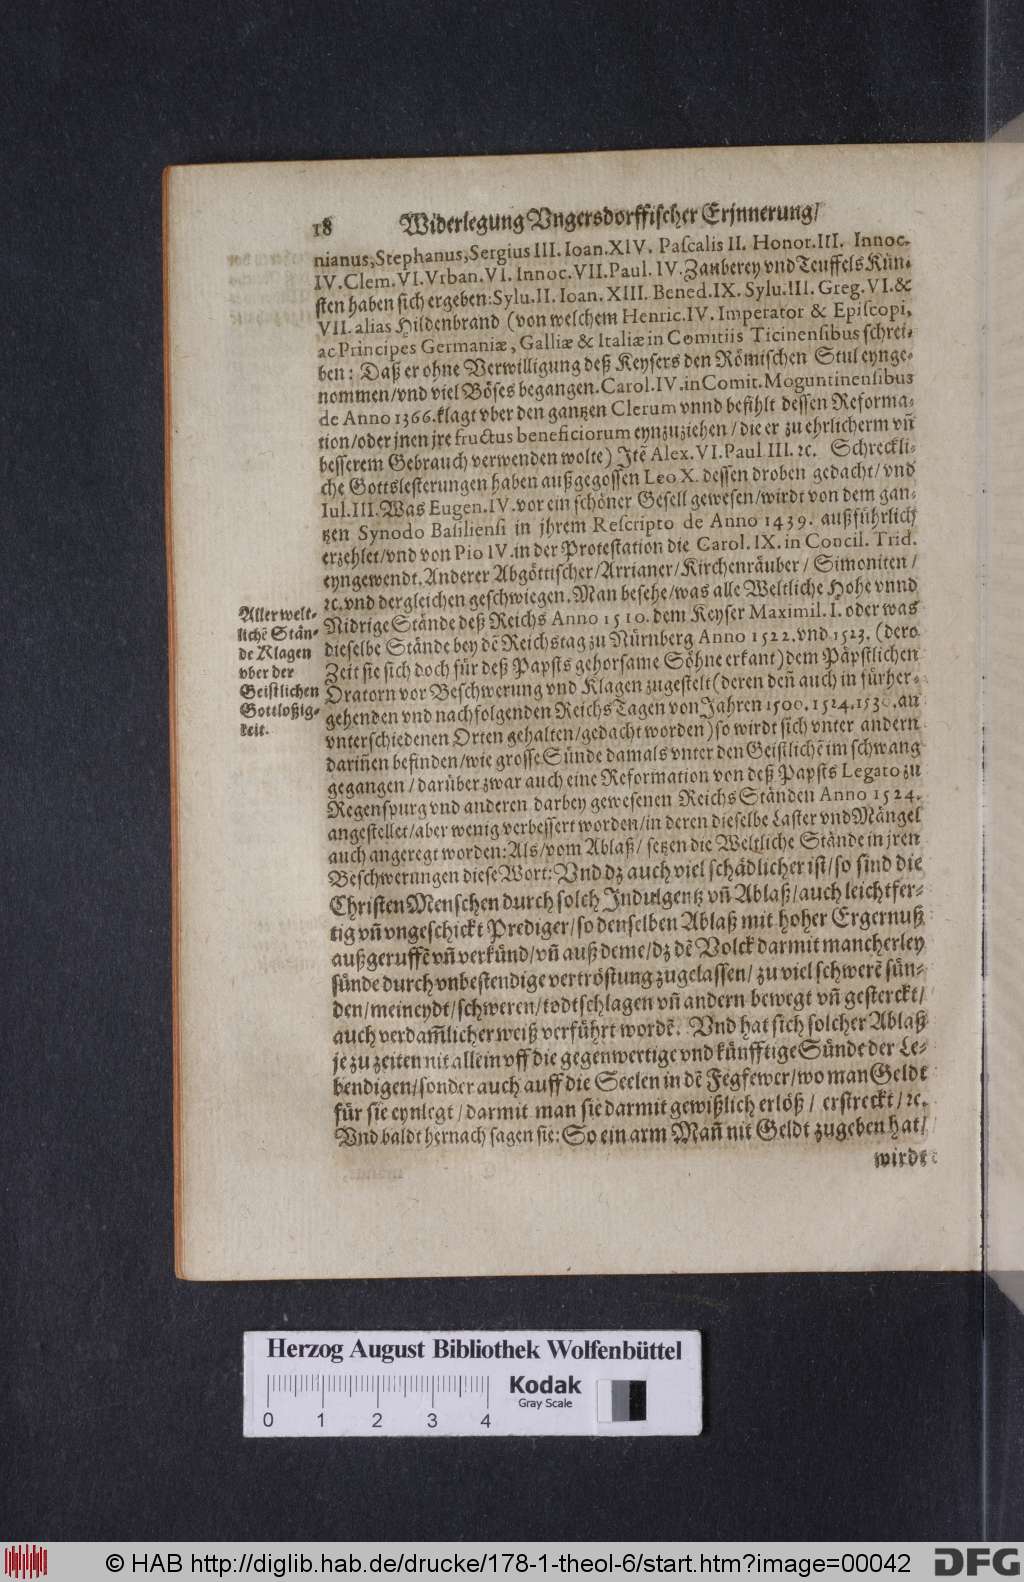 18 Widerlegung Vngersdorffischer Erjnnerung/
nianus, Stephanus, Sergius III. Ioan. XIV. Pascalis II. Honor. III. Innoc.
IV. Clem. VI. Vrban. VI. Innoc. VII. Paul. IV. Zauberey vnd Teuffels Kün-
sten haben sich ergeben: Sylu. II. Ioan. XIII. Bened. IX. Sylu. III. Greg. VI. &
VII. alias Hildenbrand (von welchem Henric. IV. Imperator & Episcopi,
ac Principes Germaniæ, Galliæ & Italiæ in Comitiis Ticinensibus schrei-
ben: Daß er ohne Verwilligung deß Keysers den Römischen Stul eynge-
nommen/ vnd viel Böses begangen. Carol. IV. in Comit. Moguntinensibus
de Anno 1366. klagt vber den gantzen Clerum vnnd befihlt dessen Reforma-
tion/ oder jnen jre fructus beneficiorum eynzuziehen/ die er zu ehrlicherm vñ
besserem Gebrauch verwenden wolte) Jtẽ Alex. VI. Paul III. ꝛc. Schreckli-
che Gottslesterungen haben außgegossen Leo X. dessen droben gedacht/ vnd
Iul. III. Was Eugen. IV. vor ein schöner Gesell gewesen/ wirdt von dem gan-
tzen Synodo Basiliensi in jhrem Rescripto de Anno 1439. außführlich
erzehlet/ vnd von Pio IV. in der Protestation die Carol. IX. in Concil. Trid.
eyngewendt. Anderer Abgöttischer/ Arrianer/ Kirchenräuber/ Simoniten/
ꝛc. vnd dergleichen geschwiegen. Man besehe/ was alle Weltliche Hohe vnnd
Nidrige Stände deß Reichs Anno 1510. dem Keyser Maximil. I. oder was
dieselbe Stände bey dẽ Reichstag zu Nürnberg Anno 1522. vnd 1523. (dero
Zeit sie sich doch für deß Papsts gehorsame Söhne erkant) dem Päpstlichen
Oratorn vor Beschwerung vnd Klagen zugestelt (deren deñ auch in fürher-
gehenden vnd nachfolgenden Reichs Tagen von Jahren 1500. 1524. 1530. an
vnterschiedenen Orten gehalten/ gedacht worden) so wirdt sich vnter andern
dariñen befinden/ wie grosse Sünde damals vnter den Geistlichẽ im schwang
gegangen/ darüber zwar auch eine Reformation von deß Papsts Legato zu
Regenspurg vnd anderen darbey gewesenen Reichs Ständen Anno 1524.
angestellet/ aber wenig verbessert worden/ in deren dieselbe Laster vnd Mängel
auch angeregt worden: Als/ vom Ablaß/ setzen die Weltliche Stände in jren
Beschwerungen diese Wort: Vnd dz auch viel schädlicher ist/ so sind die
Christen Menschen durch solch Indulgentz vñ Ablaß/ auch leichtfer-
tig vñ vngeschickt Prediger/ so denselben Ablaß mit hoher Ergernuß
außgeruffẽ vñ verkünd/ vñ auß deme/ dz dẽ Volck darmit mancherley
sünde durch vnbestendige vertröstung zugelassen/ zu viel schwerẽ sün-
den/ meineydt/ schweren/ todtschlagen vñ andern bewegt vñ gesterckt/
auch verdam̃licher weiß verführt wordẽ. Vnd hat sich solcher Ablaß
je zu zeiten nit allein vff die gegenwertige vnd künfftige Sünde der Le-
bendigen/ sonder auch auff die Seelen in dẽ Fegfewer/ wo man Geldt
für sie eynlegt/ darmit man sie darmit gewißlich erlöß/ erstreckt/ ꝛc.
Vnd baldt hernach sagen sie: So ein arm Mañ nit Geldt zugeben hat/
wirdt
Aller welt-
lichẽ Stän-
de Klagen
vber der
Geistlichen
Gottloßig-
keit.
Herzog August Bibliothek Wolfenbüttel
0 1 2 3 4
Kodak
Gray Scale
© HAB http://diglib.hab.de/drucke/178-1-theol-6/start.htm?image=00042
DFG